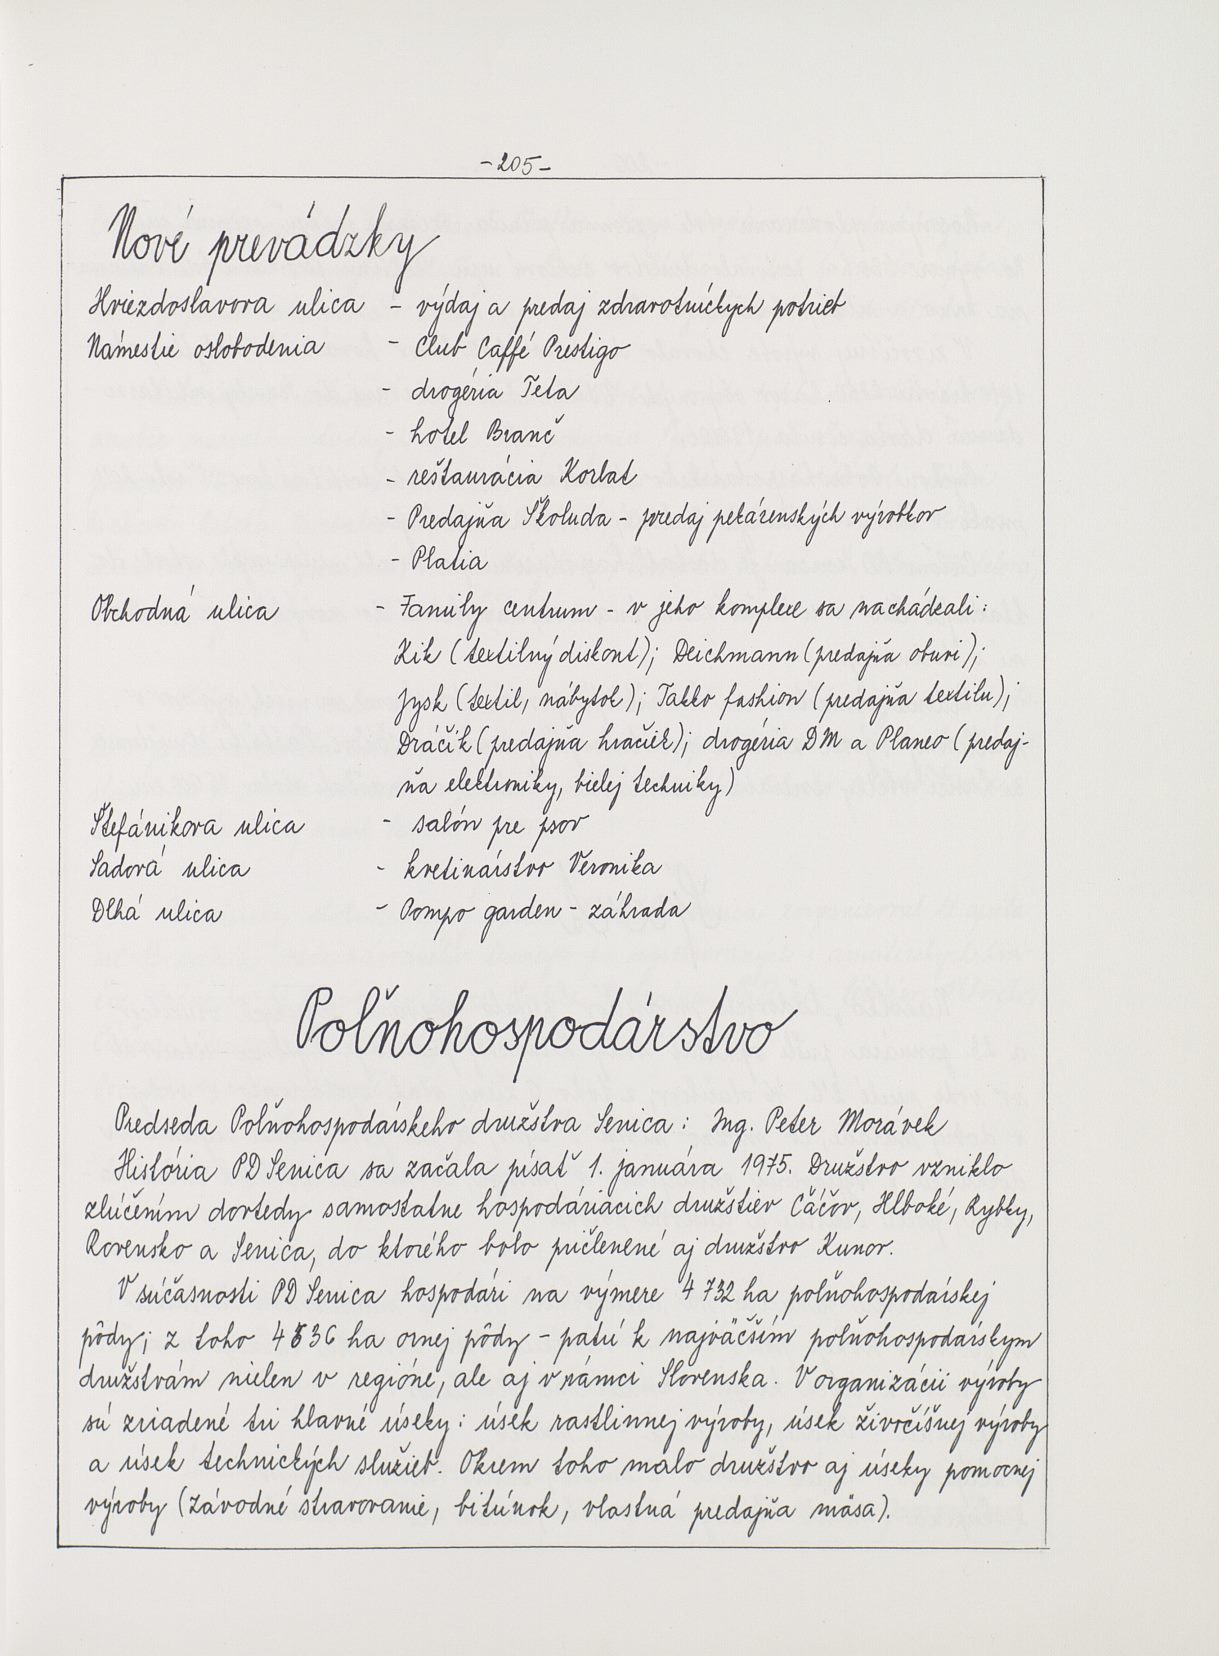 -205-
Nové prevádzky
Hviezdoslavova ulica - výdaj a predaj zdravotníckych potrieb
Námestie oslobodenia - Club Caffé Prestigo
- drogéria Teta
- hotel Branč
- reštaurácia Korbat
- Predajňa Školuda - predaj pekárenských výrobkov
- Platia
Obchodná ulica - Family centrum - v jeho komplexe sa nachádzali:
Kik (textilný diskont); Deichmann (predajňa obuvi);
Jysk (textil, nábytok); Takko fashion (predajňa textilu);
Dráčik (predajňa hračiek); drogéria DM a Planeo (predaj-
ňa elektroniky, bielej techniky)
Štefánikova ulica - salón pre psov
Sadová ulica - kvetinárstvo Veronika
Dlhá ulica - Pompo garden - záhrada
Poľnohospodárstvo
Predseda Poľnohospodárskeho družstva Senica: Ing. Peter Morávek
História PD Senica sa začala písať 1. januára 1975. Družstvo vzniklo
zlúčením dovtedy samostatne hospodáriacich družstiev Čáčov, Hlboké, Rybky,
Rovensko a Senica, do ktorého bolo pričlenené aj družstvo Kunov.
V súčasnosti PD Senica hospodári na výmere 4 732 ha poľnohospodárskej
pôdy; z toho ha ornej pôdy - patrí k najväčším poľnohospodárskym
družstvám nielen v regióne, ale aj v rámci Slovenska. V organizácii výroby
sú zriadené tri hlavné úseky: úsek rastlinnej výroby, úsek živočíšnej výroby
a úsek technických služieb. Okrem toho malo družstvo aj úseky pomocnej
výroby (závodné stravovanie, bitúnok, vlastná predajňa mäsa).